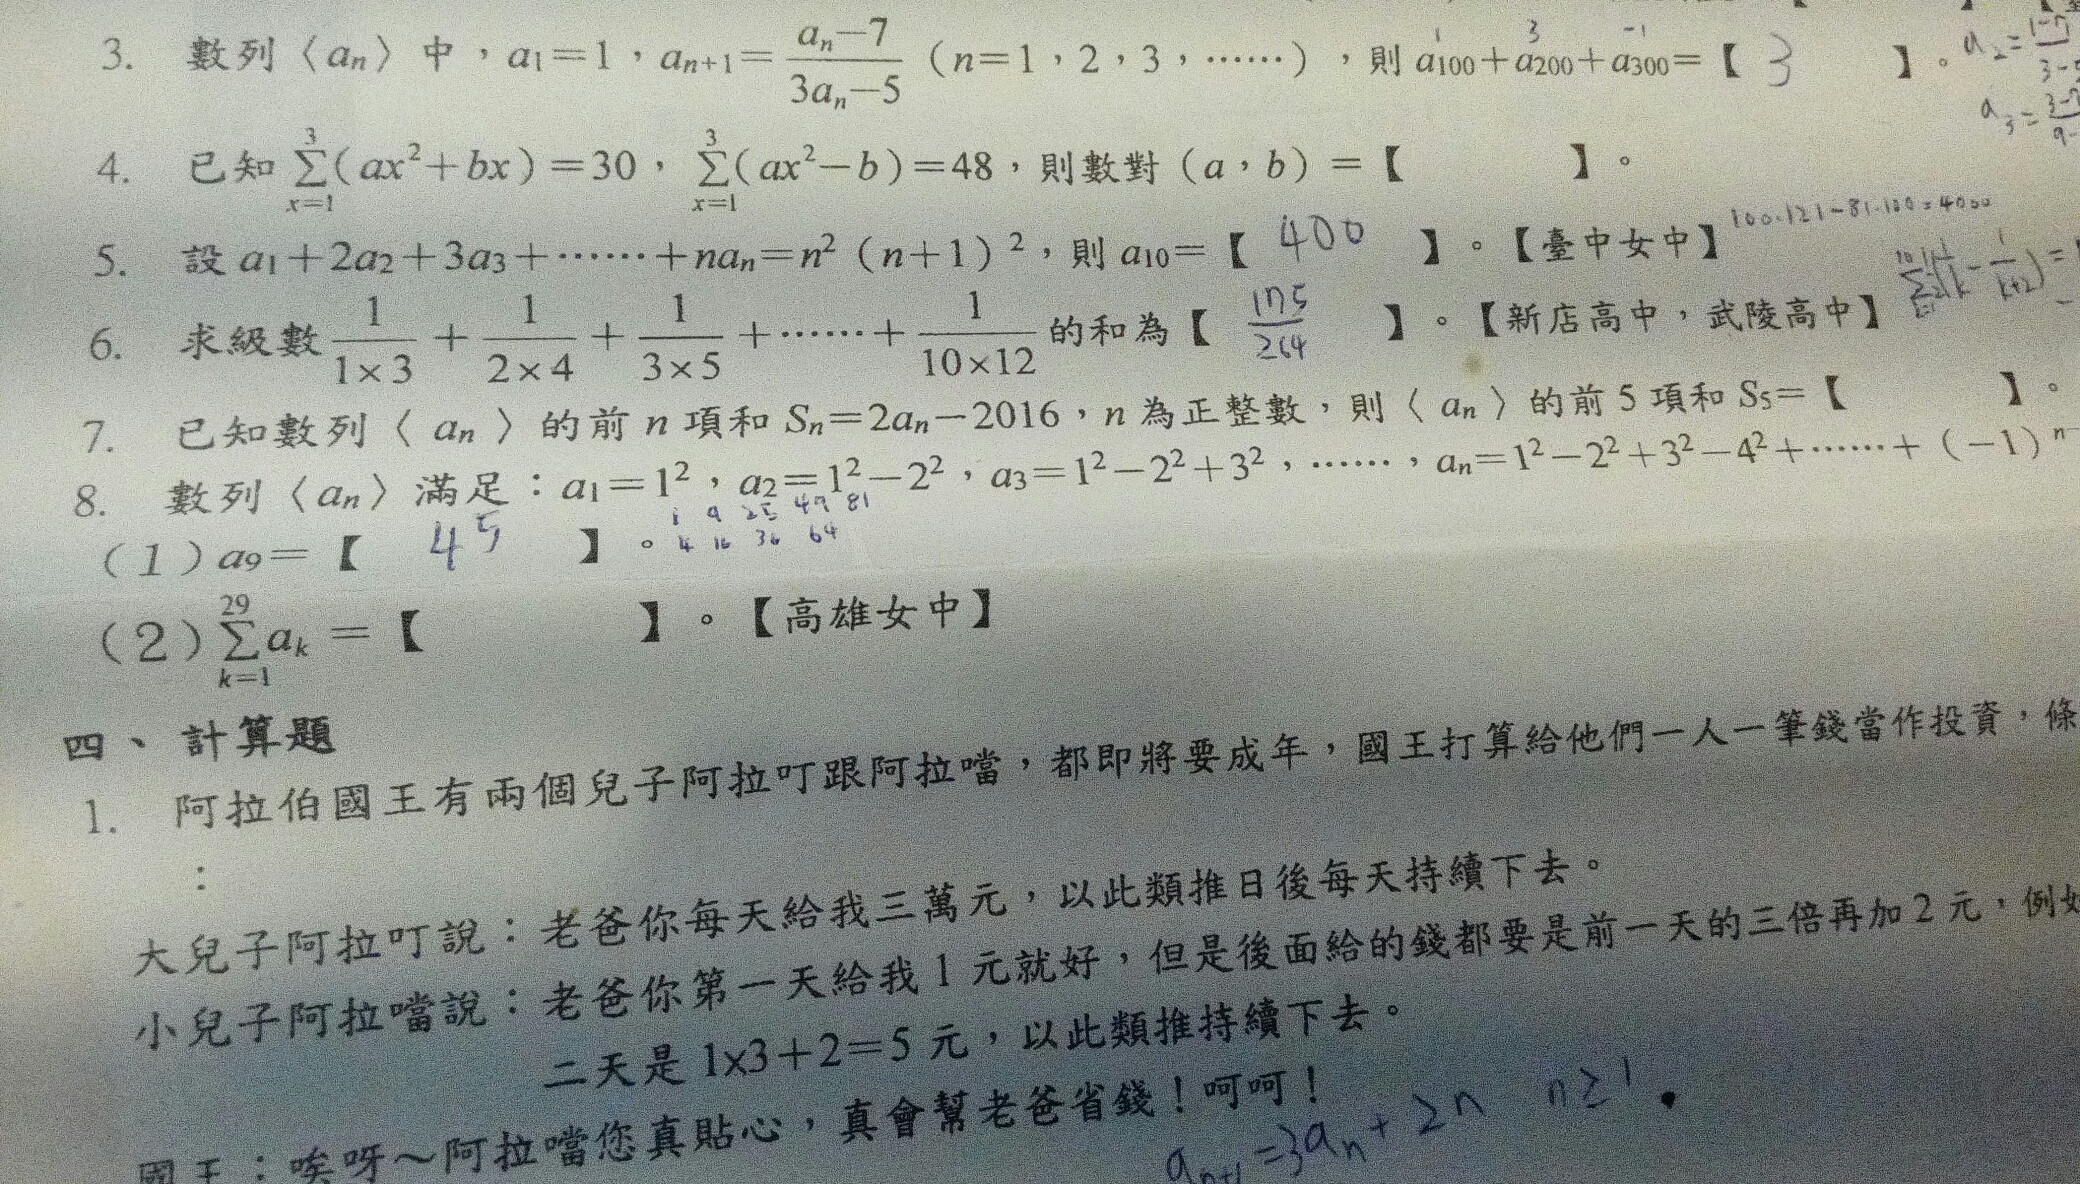 3. 數列〈an〉中，a1=1，an+1=(an-7)/(3an-5)（n=1，2，3，……），則 a100+a200+a300=【 3 】。
1 3 -1
a2=
a3=
4. 已知 Σ(x=1→3)(ax²+bx)=30，Σ(x=1→3)(ax²-b)=48，則數對（a，b）=【 】。
5. 設 a1+2a2+3a3+……+nan=n²（n+1）²，則 a10=【 400 】。【臺中女中】
100·121-81·100=4000
6. 求級數 1/(1×3)+1/(2×4)+1/(3×5)+……+1/(10×12) 的和為【 175/264 】。【新店高中，武陵高中】
7. 已知數列〈an〉的前 n 項和 Sn=2an-2016，n 為正整數，則〈an〉的前 5 項和 S5=【 】。
8. 數列〈an〉滿足：a1=1²，a2=1²-2²，a3=1²-2²+3²，……，an=1²-2²+3²-4²+……+（-1）ⁿ⁻
1 9 25 49 81
（1）a9=【 45 】。
4 16 36 64
（2）Σ(k=1→29)ak=【 】。【高雄女中】
四、計算題
1. 阿拉伯國王有兩個兒子阿拉叮跟阿拉噹，都即將要成年，國王打算給他們一人一筆錢當作投資，條
：
大兒子阿拉叮說：老爸你每天給我三萬元，以此類推日後每天持續下去。
小兒子阿拉噹說：老爸你第一天給我 1 元就好，但是後面給的錢都要是前一天的三倍再加 2 元，例如
二天是 1x3+2=5 元，以此類推持續下去。
國王：唉呀～阿拉噹您真貼心，真會幫老爸省錢！呵呵！
an+1=3an+2n n≥1